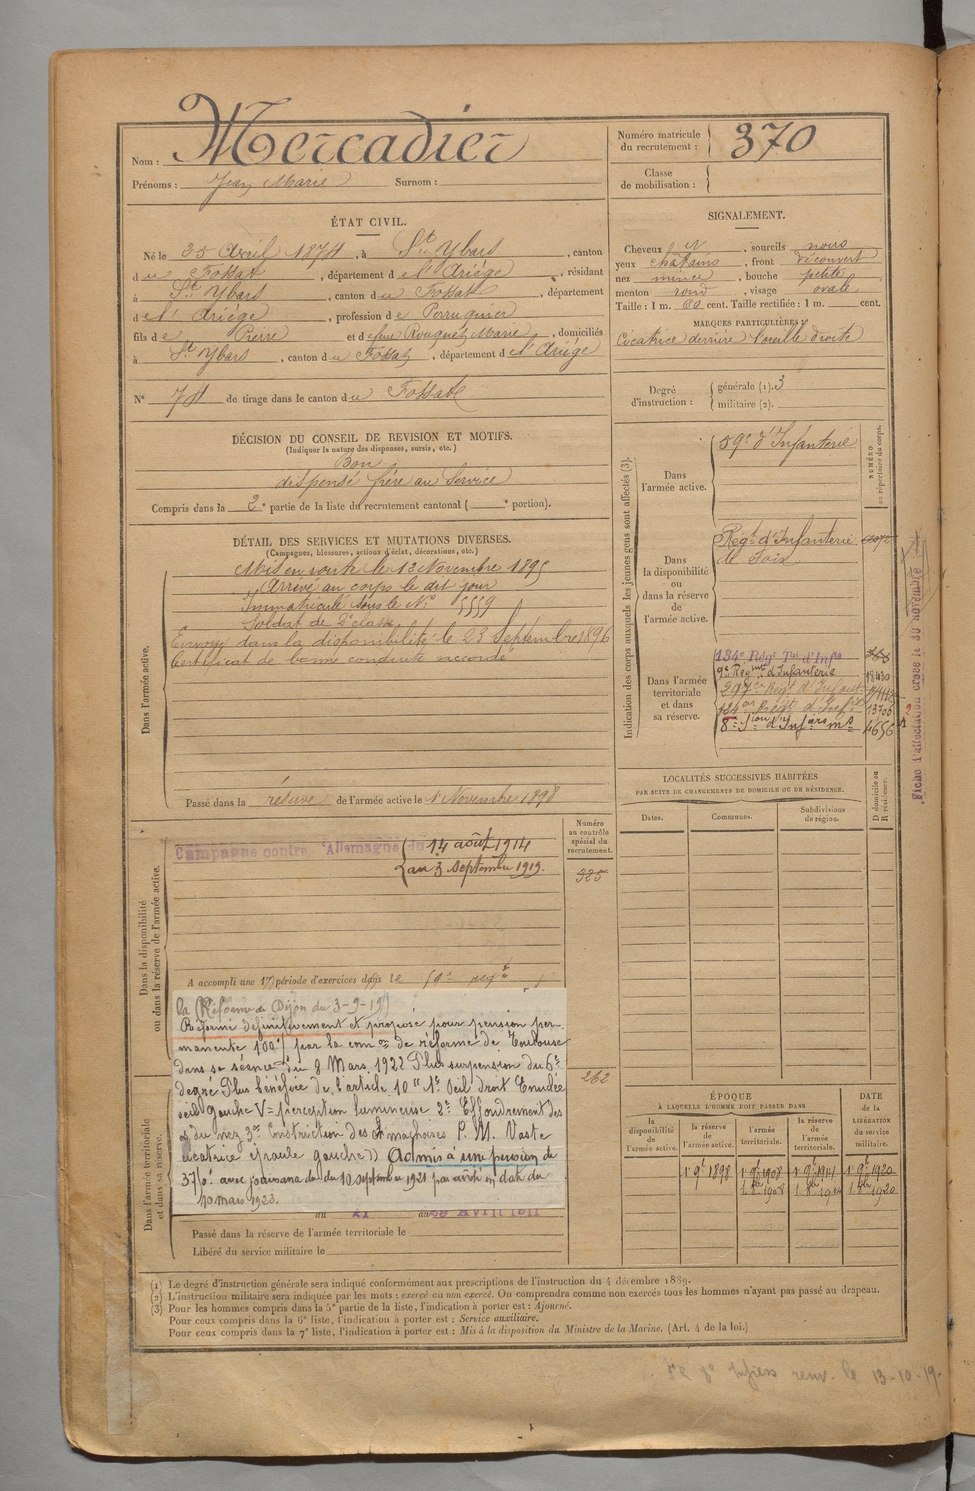 Mercadier
Nom :
Prénoms : Jean Marie Surnom :
Numéro matricule du recrutement : 370
Classe de mobilisation :
ÉTAT CIVIL.
Né le 25 Avril 1874, à St Ybars, canton
du Fossat, département de l'Ariège, résidant
à St Ybars, canton du Fossat, département
de l'Ariège, profession de Perruquier
fils de Pierre et de Rouquet Marie, domiciliés
à St Ybars, canton du Fossat, département de l'Ariège
N° 74 de tirage dans le canton du Fossat
SIGNALEMENT.
Cheveux N, sourcils noirs
yeux chatains, front découvert
nez mince, bouche petite
menton rond, visage ovale
Taille : 1 m. 60 cent. Taille rectifiée : 1 m. cent.
MARQUES PARTICULIÈRES :
Cicatrice derrière l'oreille droite
Degré d'instruction : générale (1). 3
militaire (2).
DÉCISION DU CONSEIL DE REVISION ET MOTIFS.
(Indiquer la nature des dispenses, sursis, etc.)
Bon
dispensé frère au service
Compris dans la 2e partie de la liste du recrutement cantonal ( e portion).
DÉTAIL DES SERVICES ET MUTATIONS DIVERSES.
(Campagnes, blessures, actions d'éclat, décorations, etc.)
Dans l'armée active.
Mis en route le 12 Novembre 1895
Arrivé au corps le dit jour
Immatriculé sous le N° 5559
Soldat de 2e classe
Envoyé dans la disponibilité le 23 Septembre 1896
Certificat de bonne conduite accordé
Passé dans la réserve de l'armée active le 1 Novembre 1898
Indication des corps auxquels les jeunes gens sont affectés (3).
NUMÉRO au répertoire du corps.
Dans l'armée active.
59e d'Infanterie
Dans la disponibilité ou dans la réserve de l'armée active.
Régt d'Infanterie
de Foix
Dans l'armée territoriale et dans sa réserve.
134e Régt Tal d'Infie
9e Régiment d'Infanterie 18430
297e Régt d'Infant
124e Régt d'Infie 13706
8e Son d'Infers mres 4656
Fiche d'affectation créée le 30 novembre
LOCALITÉS SUCCESSIVES HABITÉES
PAR SUITE DE CHANGEMENTS DE DOMICILE OU DE RÉSIDENCE.
Dates. Communes. Subdivisions de région. D domicile ou R résidence.
Dans la disponibilité ou dans la réserve de l'armée active.
Numéro au contrôle spécial du recrutement.
325
Campagne contre l'Allemagne du 14 août 1914
au 3 septembre 1919.
A accompli une 1re période d'exercices dans le 59e regt
la (Réforme de Dijon du 3-9-19)
Réformé définitivement et proposé pour pension per-
manente 100% par la comon de réforme de Toulouse
dans sa séance du 8 Mars 1922 Plus suspension du 6e
degré Plus bénéfice de l'article 10 1° Oeil droit Enucléé
oeil gauche V = perception lumineuse 2° Effondrement des
os du nez 3° Constriction des machoires P. M. Vaste
cicatrice épaule gauche)) Admis à une pension de
avec jouissance du 10 septembre 1921 par arrêté en date du
10 mars 1923.
262
Dans l'armée territoriale et dans sa réserve.
du 21 au 29 Avril 1911
Passé dans la réserve de l'armée territoriale le
Libéré du service militaire le
ÉPOQUE
À LAQUELLE L'HOMME DOIT PASSER DANS
DATE de la LIBÉRATION du service militaire.
la disponibilité de l'armée active. la réserve de l'armée active. l'armée territoriale. la réserve de l'armée territoriale.
1 9e 1898 1 9e 1908 1 9e 1914 1 9e 1920
1 8bre 1908 1 8bre 1914 1 8bre 1920
(1) Le degré d'instruction générale sera indiqué conformément aux prescriptions de l'instruction du 4 décembre 1889.
(2) L'instruction militaire sera indiquée par les mots : exercé ou non exercé. On comprendra comme non exercés tous les hommes n'ayant pas passé au drapeau.
(3) Pour les hommes compris dans la 5e partie de la liste, l'indication à porter est : Ajourné.
Pour ceux compris dans la 6e liste, l'indication à porter est : Service auxiliaire.
Pour ceux compris dans la 7e liste, l'indication à porter est : Mis à la disposition du Ministre de la Marine. (Art. 4 de la loi.)
renv. le 13-10-19